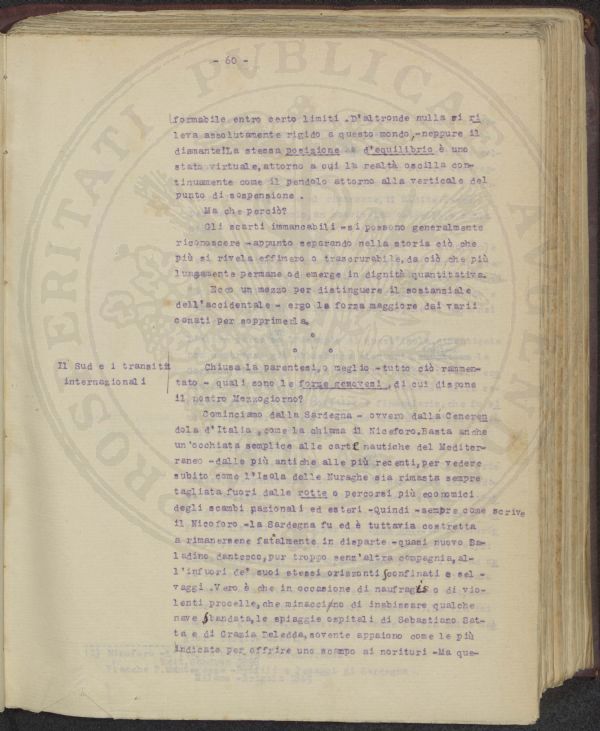 - 60 -
formabile entro certo limiti .D'altronde nulla si ri
leva assolutamente rigido a questo mondo,-neppure il
diamante!La stessa posizione d'equilibrio è uno
stato virtuale,attorno a cui la realtà oscilla con-
tinuamente come il pendolo attorno alla verticale del
punto di sospensione .
Ma che perciò?
Gli scarti immancabili -si possono generalmente
riconoscere -appunto separando nella storia ciò che
più si rivela effimero o trascurabile,da ciò che più
lungamente permane od emerge in dignità quantitativa.
Ecco un mezzo per distinguere il sostanziale
dell'accidentale - ergo la forza maggiore dai varii
conati per sopprimerla.
Il Sud e i transiti
internazionali
Chiusa la parentesi,o meglio -tutto ciò rammen-
tato - quali sono le forze genovesi ,di cui dispone
il nostro Mezzogiorno?
Cominciamo dalla Sardegna - ovvero dalla Ceneren
dola d'Italia ,come la chiama il Niceforo.Basta anche
un'occhiata semplice alle carte nautiche del Mediter-
raneo -dalle più antiche alle più recenti,per vedere
subito come l'Isola delle Nuraghe sia rimasta sempre
tagliata fuori dalle rotte o percorsi più economici
degli scambi nazionali ed esteri -Quindi -sempre come scrive
il Nicoforo -la Sardegna fu ed è tuttavia costretta
a rimanersene fatalmente in disparte -quasi nuovo Sa-
ladino dantesco,pur troppo senz'altra compagnia,al-
l'infuori de' suoi stessi orizzonti sconfinati e sel -
vaggi .Vero è che in occasione di naufragis o di vio-
lenti procelle,che minacciano di inabissare qualche
nave sbandata,le spiaggie ospitali di Sebastiano Sat-
ta e di Grazia Deledda,sovente appaiono come le più
indicate per offrire uno scampo ai morituri -Ma que-